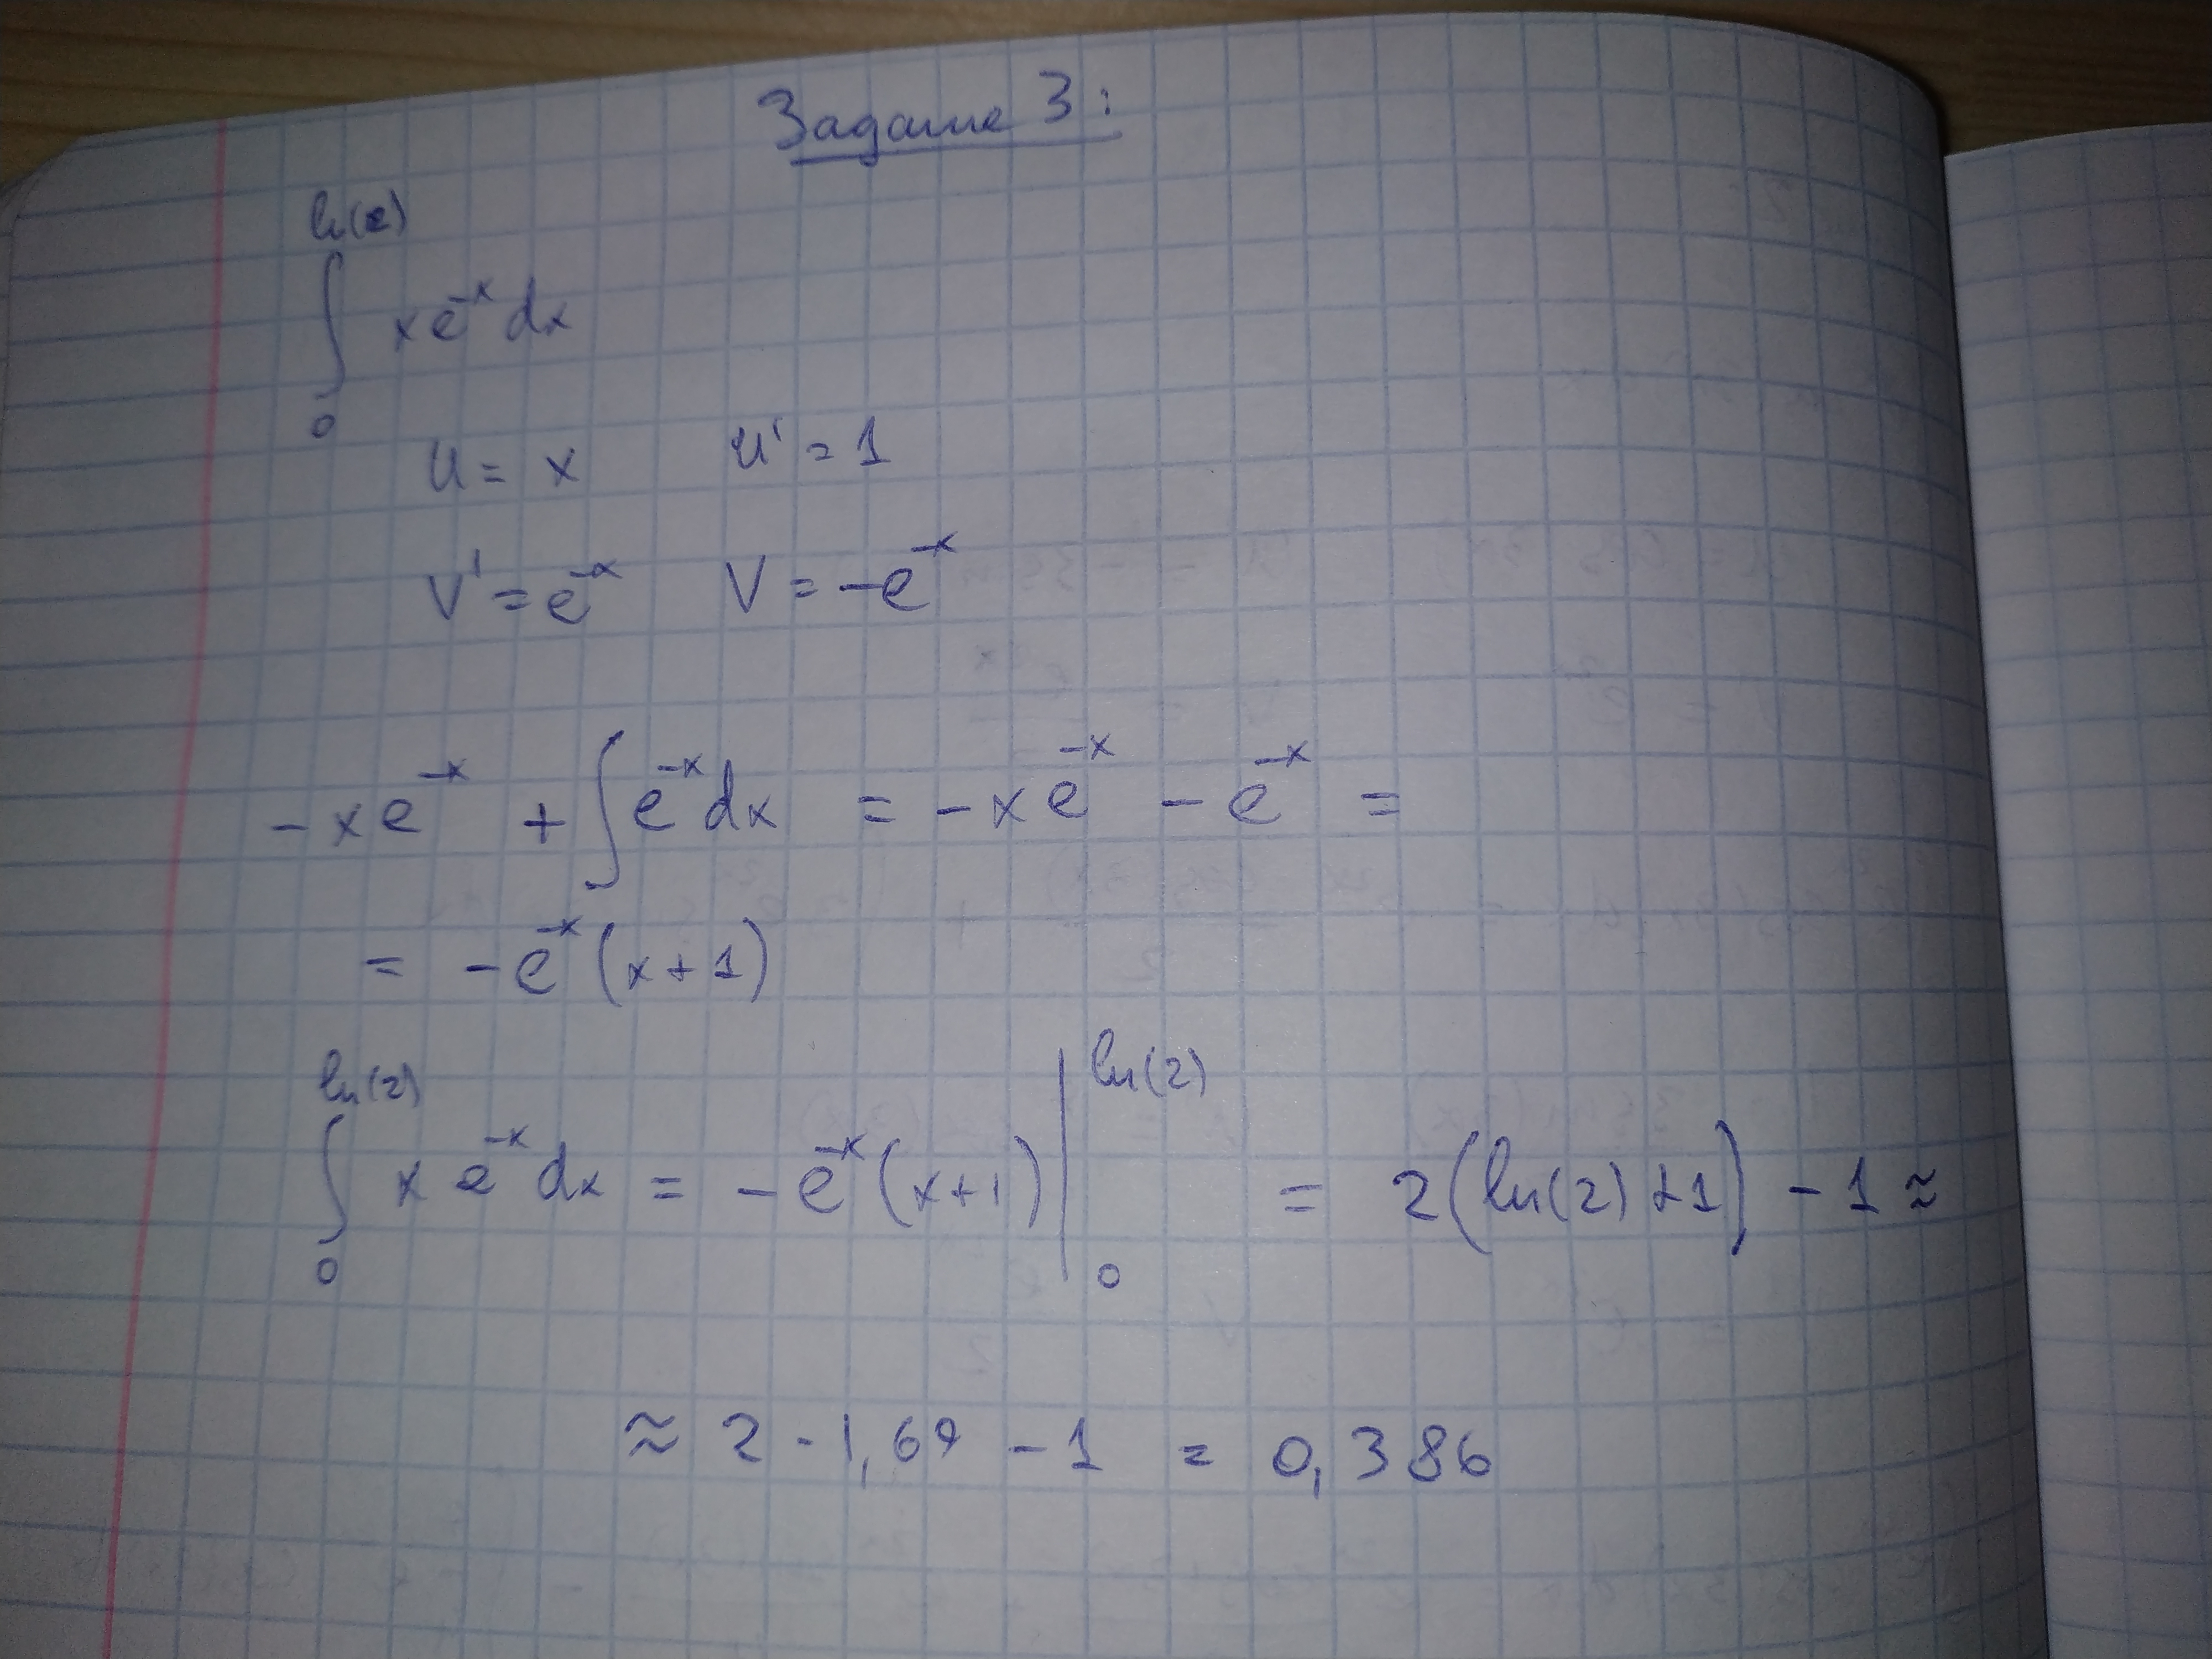 Задание 3:
ln(2)
∫ x e^{-x} dx
0
u = x u' = 1
v' = e^{-x} v = -e^{-x}
-x e^{-x} + ∫ e^{-x} dx = -x e^{-x} - e^{-x} =
= -e^{-x} (x+1)
ln(2) ln(2)
∫ x e^{-x} dx = -e^{-x} (x+1) | = 2(ln(2)+1) - 1 ≈
0 0
≈ 2 · 1,69 - 1 = 0,386